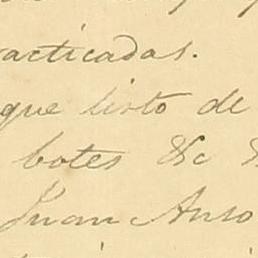 racticadas.
que listo de
botes &c
Juan Anso